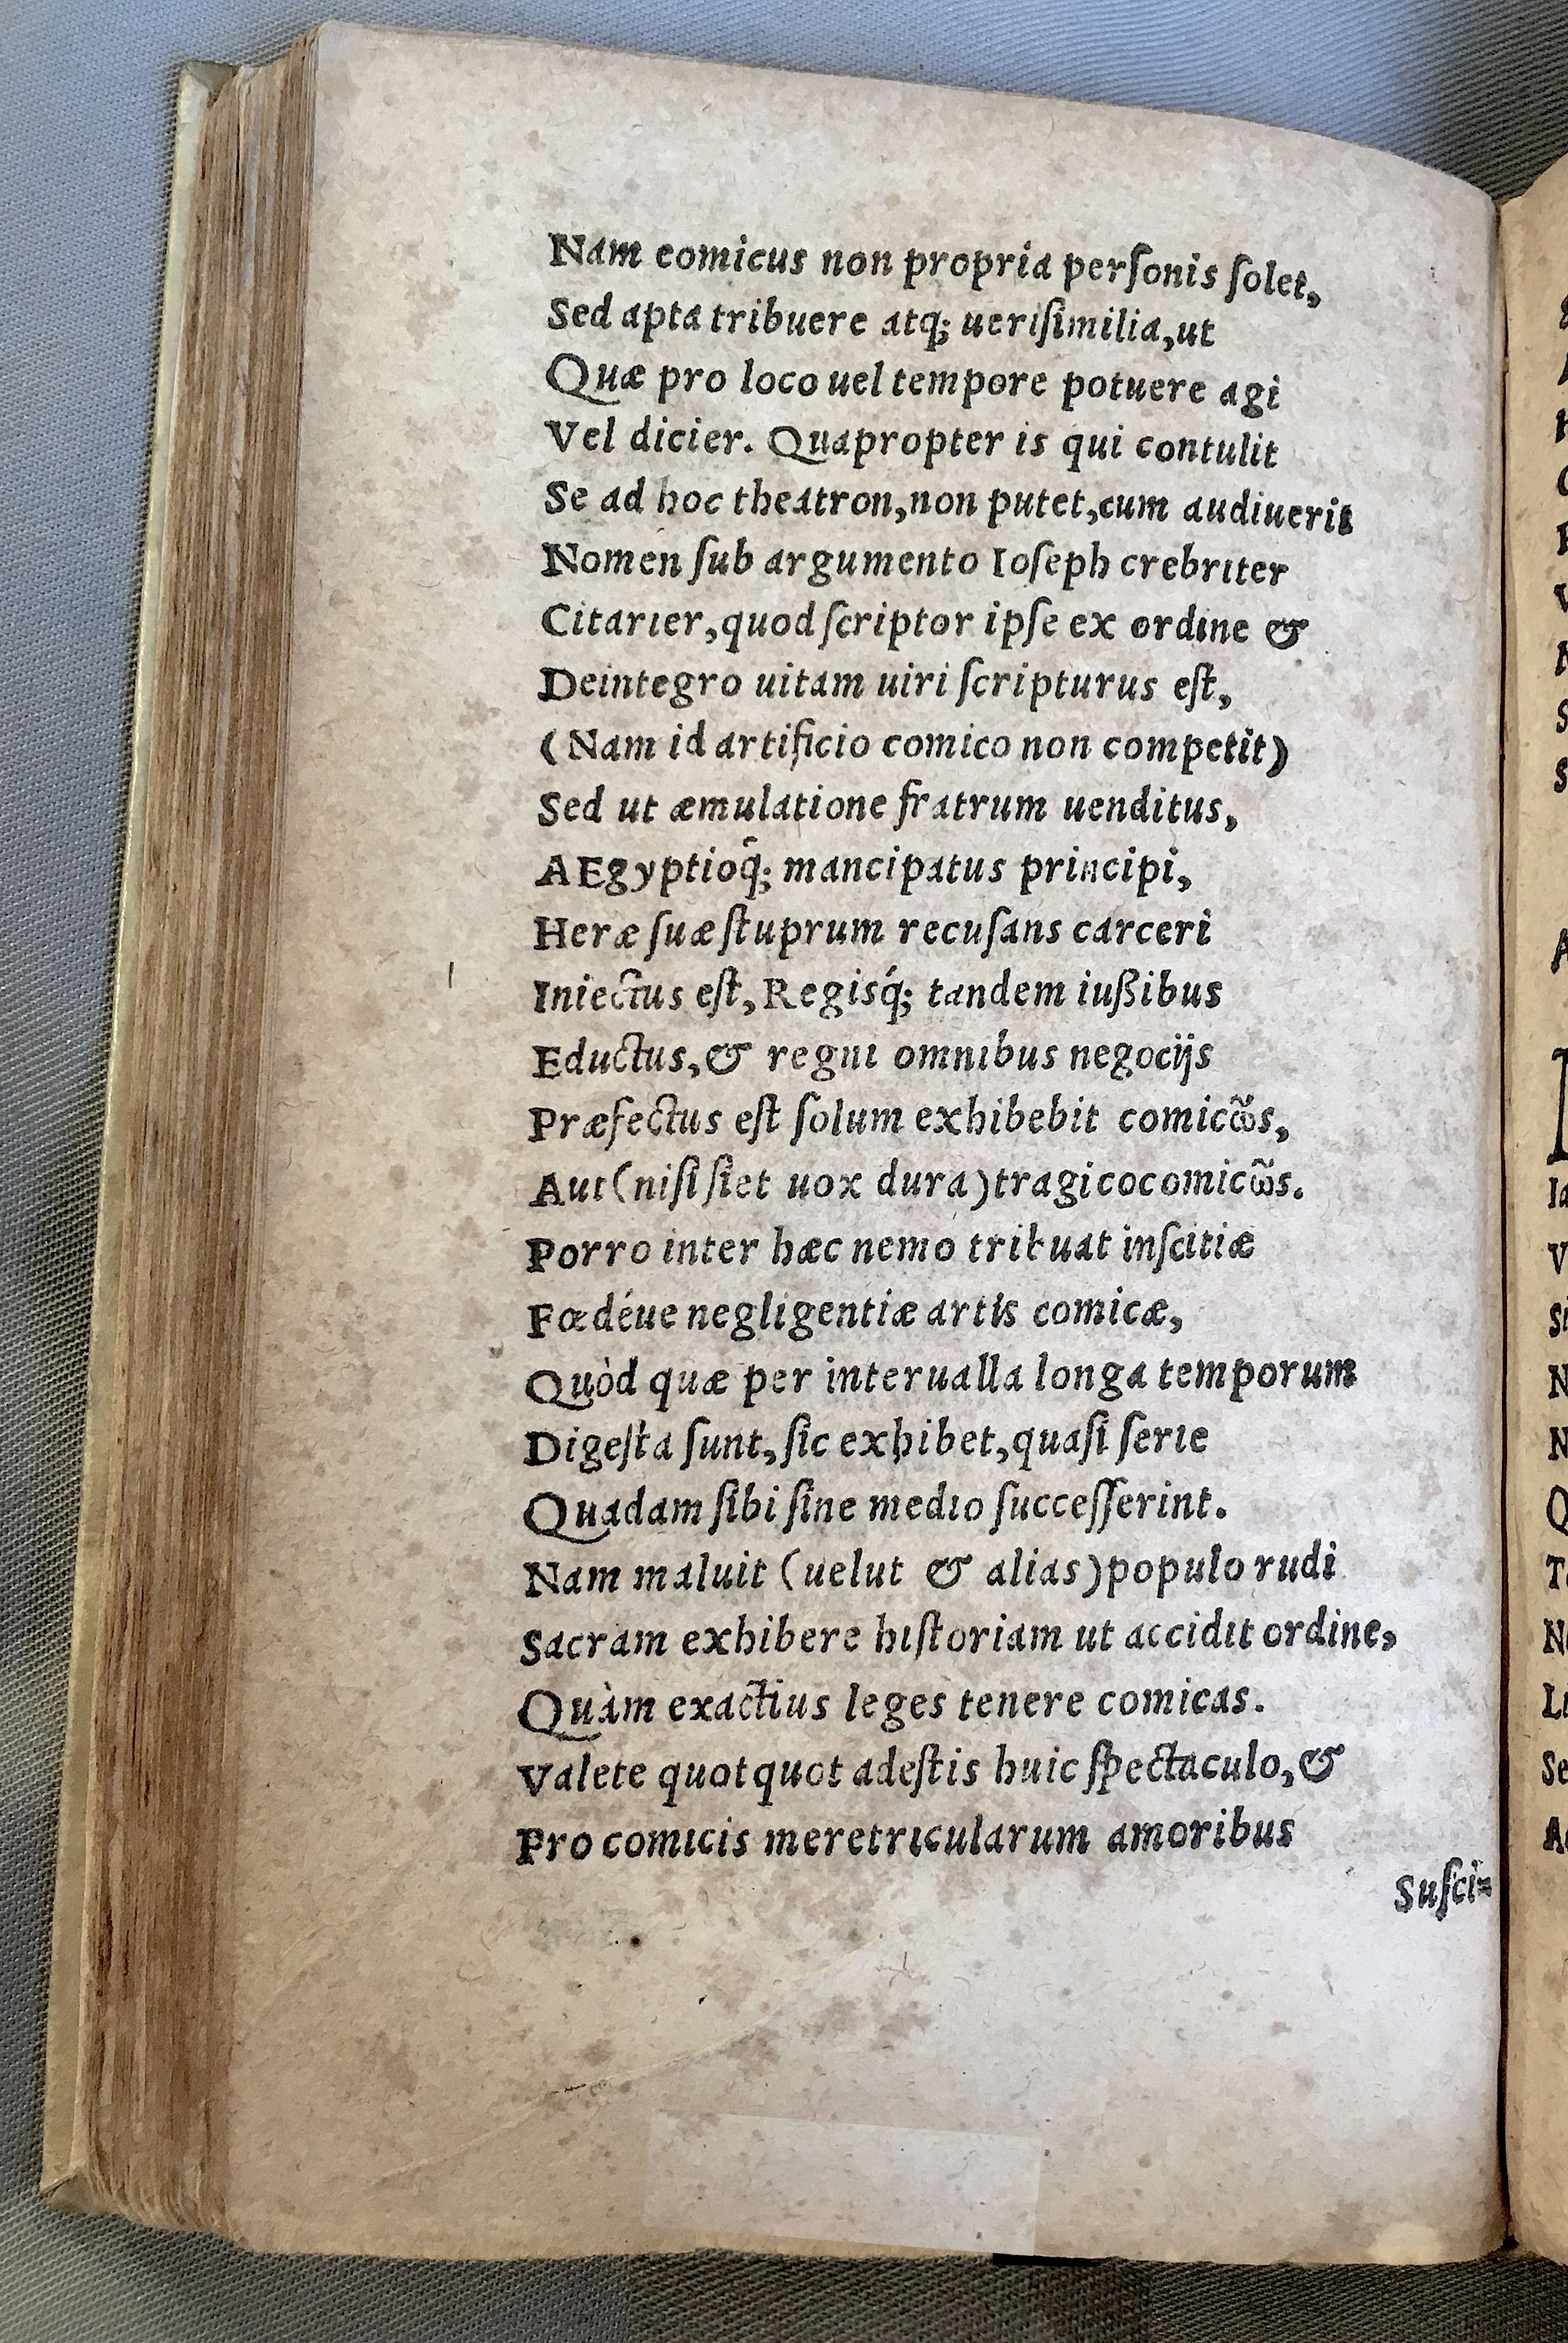 Nam comicus non propria perſonis ſolet,
Sed apta tribuere atq; ueriſimilia, ut
Quæ pro loco uel tempore potuere agi
Vel dicier. Quapropter is qui contulit
Se ad hoc theatron, non putet, cum audiuerit
Nomen ſub argumento Ioſeph crebriter
Citarier, quod ſcriptor ipſe ex ordine &
Deintegro uitam uiri ſcripturus eſt,
(Nam id artificio comico non competit)
Sed ut æmulatione fratrum uenditus,
AEgyptioq́; mancipatus principi,
Heræ ſuæ ſtuprum recuſans carceri
Iniectus eſt, Regisq́; tandem iußibus
Eductus, & regni omnibus negocijs
Præfectus eſt ſolum exhibebit comicω̃s,
Aut (niſi ſiet uox dura) tragicocomicω̃s.
Porro inter hæc nemo tribuat inſcitiæ
Fœdéue negligentiæ artis comicæ,
Quòd quæ per interualla longa temporum
Digeſta ſunt, ſic exhibet, quaſi ſerie
Quadam ſibi ſine medio ſucceſſerint.
Nam maluit (uelut & alias) populo rudi
Sacram exhibere hiſtoriam ut accidit ordine,
Quàm exactius leges tenere comicas.
Valete quotquot adeſtis huic ſpectaculo, &
Pro comicis meretricularum amoribus
Suſci=